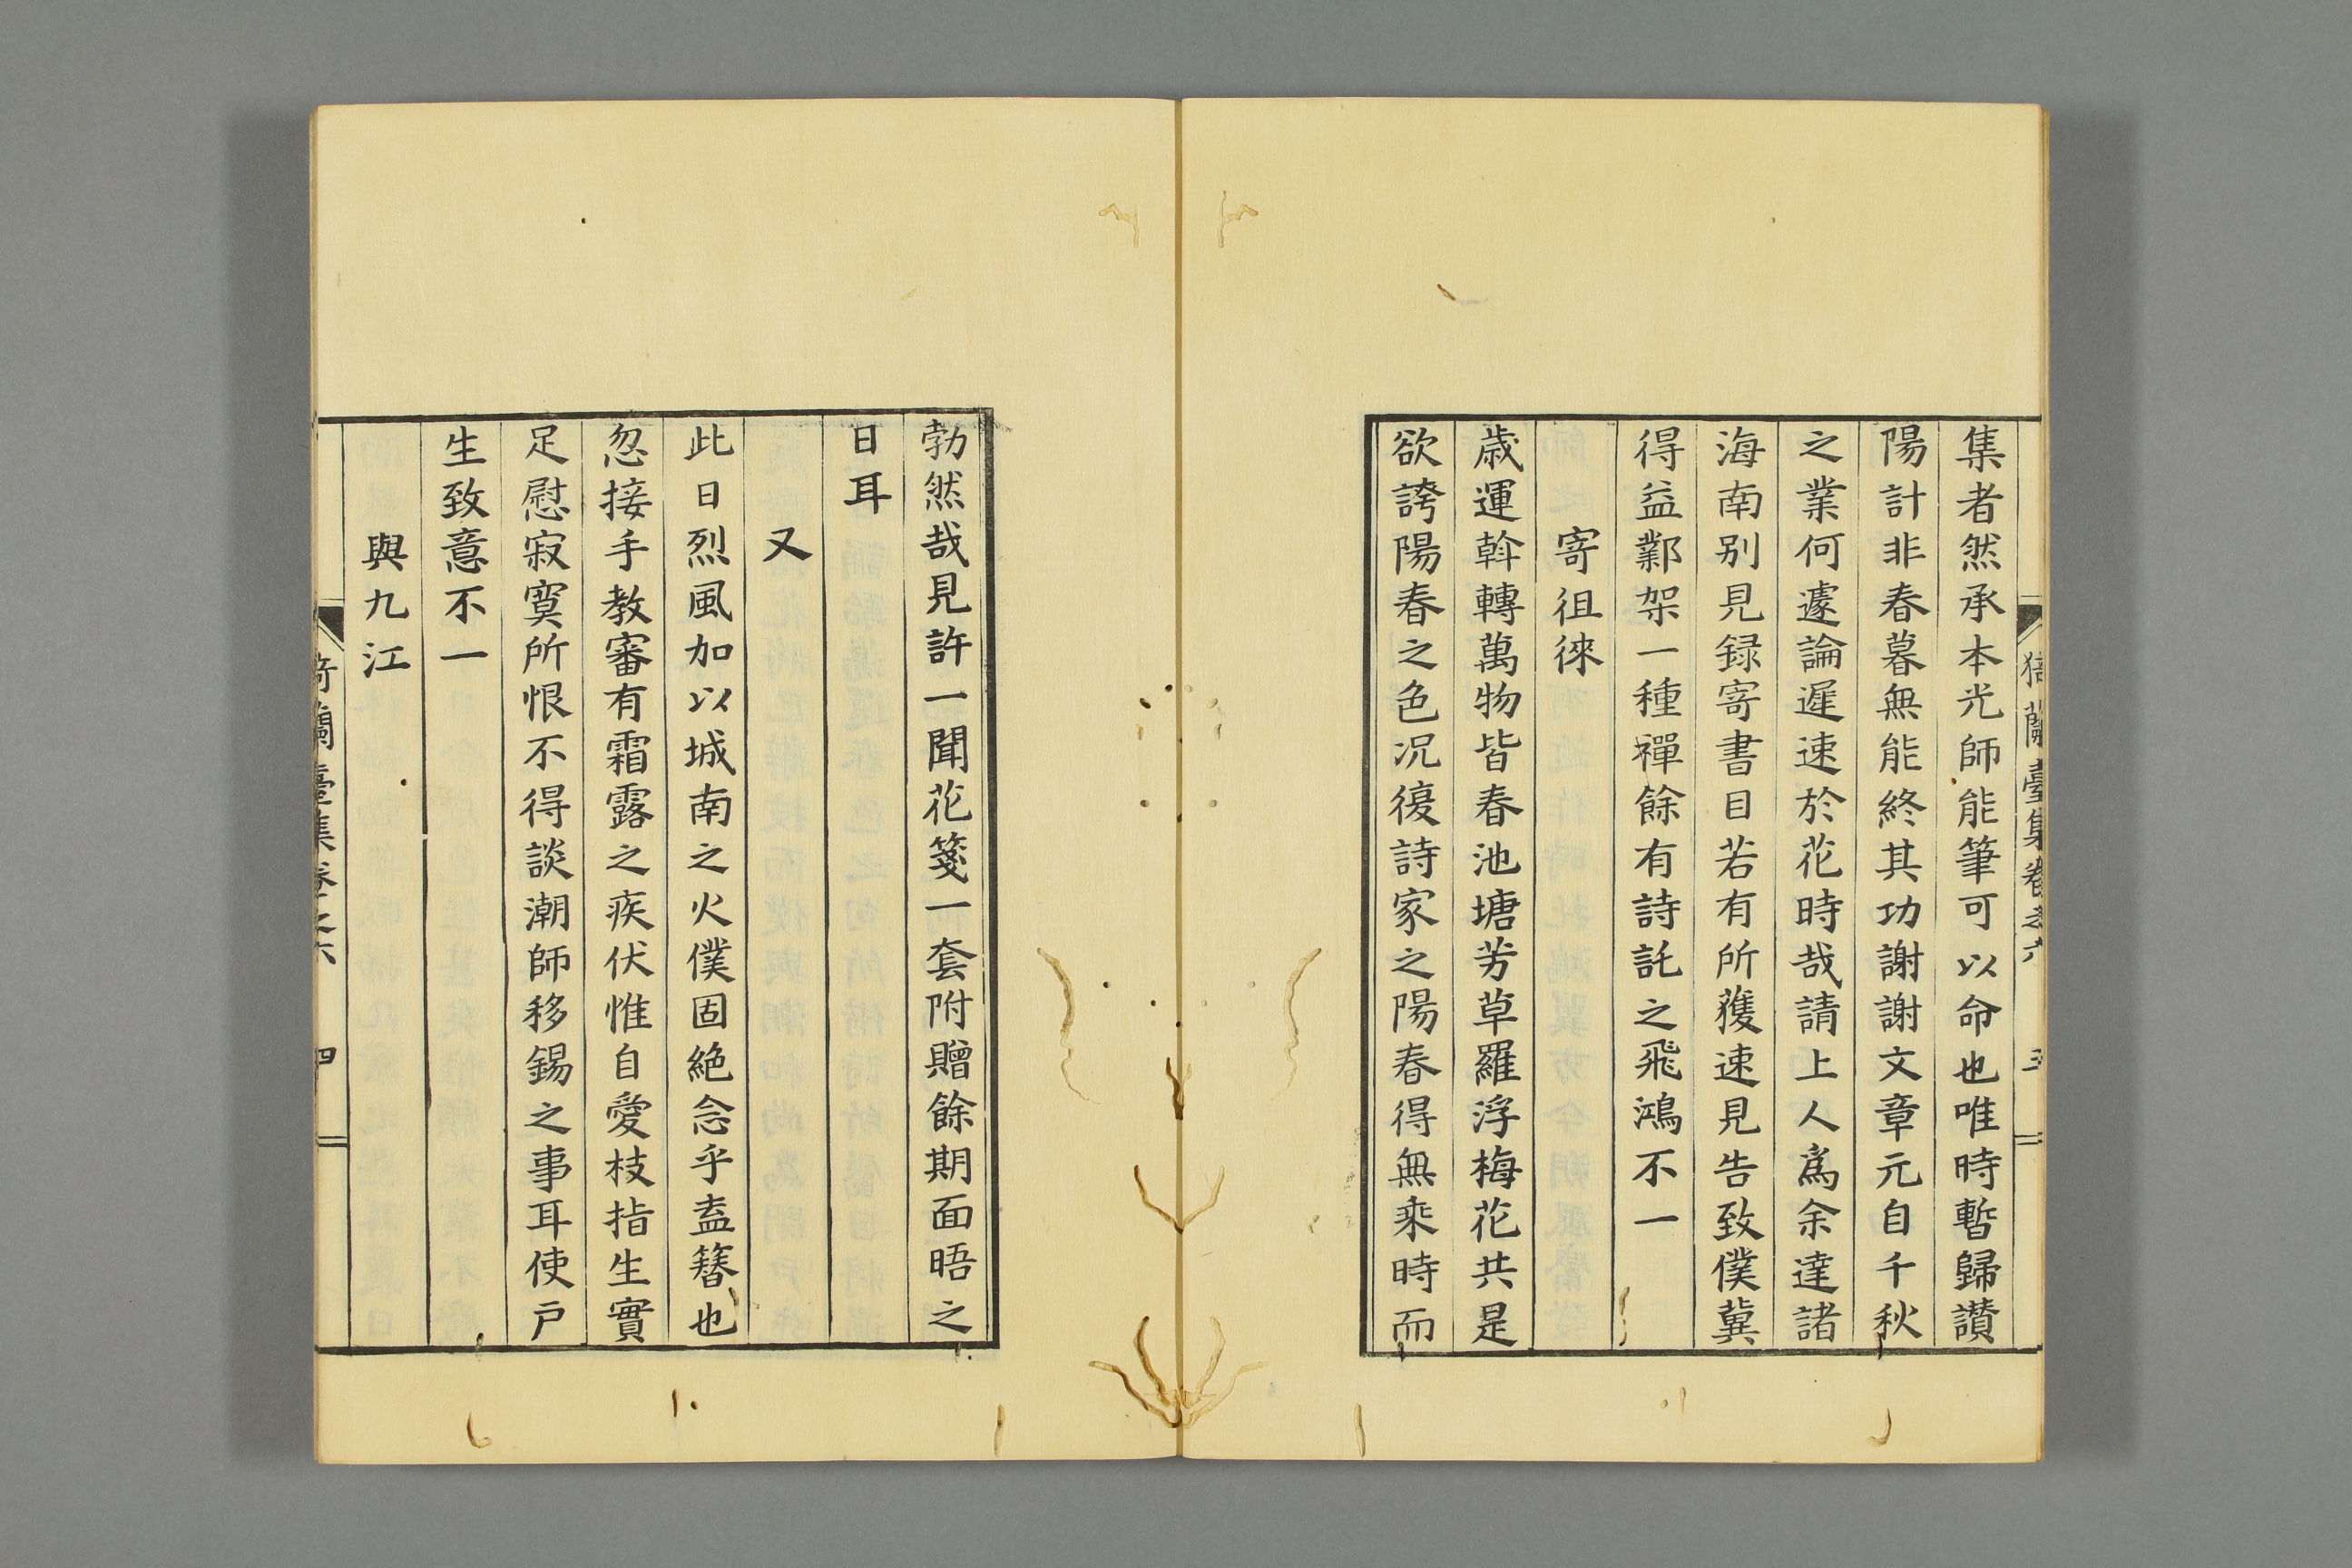 猗蘭臺集卷之六 三
集者然承本光師能筆可以命也唯時暫歸讃
陽計非春暮無能終其功謝謝文章元自千秋
之業何遽論遲速於花時哉請上人爲余達諸
海南别見録寄書目若有所獲速見告致僕冀
得益鄴架一種禪餘有詩託之飛鴻不一
寄徂徠
歳運斡轉萬物皆春池塘芳草羅浮梅花共是
欲誇陽春之色况復詩家之陽春得無乘時而
勃然哉見許一聞花箋一套附贈餘期面晤之
日耳
又
此日烈風加以城南之火僕固絶念乎盍簪也
忽接手教審有霜露之疾伏惟自愛枝指生實
足慰寂寞所恨不得談潮師移錫之事耳使戸
生致意不一
與九江
猗蘭臺集卷之六 四